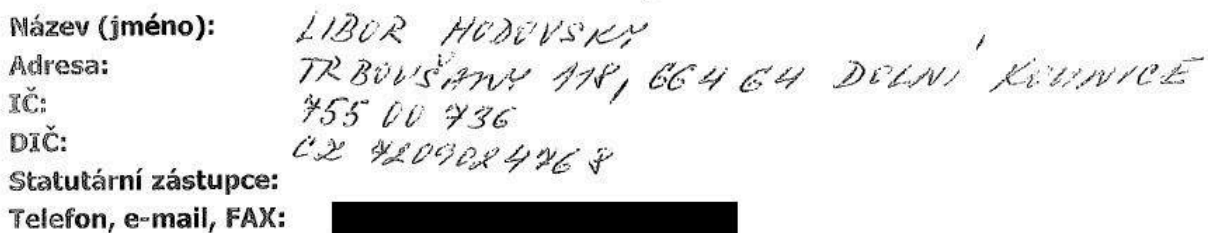 Název (jméno): LIBOR HODOVSKÝ
Adresa: TRBOUŠANY 118, 664 64 DOLNÍ KOUNICE
IČ: 755 00 736
DIČ: CZ 7209024768
Statutární zástupce:
Telefon, e-mail, FAX: